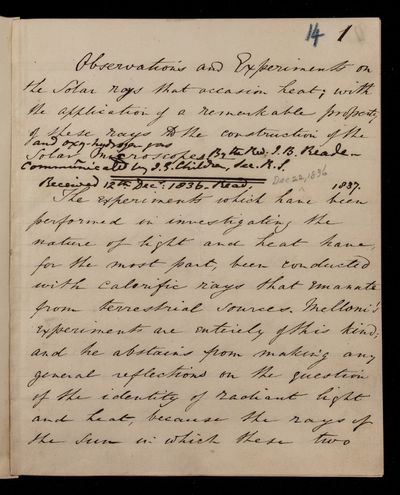 14 1
Observations and Experiments on
the Solar rays that occasion heat; with
the application of a remarkable property
of these rays to the construction of the
and oxy-hydrogen gas
Solar Microscopes By the Rev. J. B. Reade–
Communicated by J. G. Children, Sec. R.S.
Received 12th Dec: 1836. Read, Dec 22, 1836 1837.
The experiments which have been
performed in investigating the
nature of light and heat have,
for the most part, been conducted
with calorific rays that emanate
from terrestrial sources. Melloni's
experiment are entirely of this kind;
and he abstains from making any
general reflections on the question
of the identity of radiant light
and heat, because the rays of
the sun in which these two